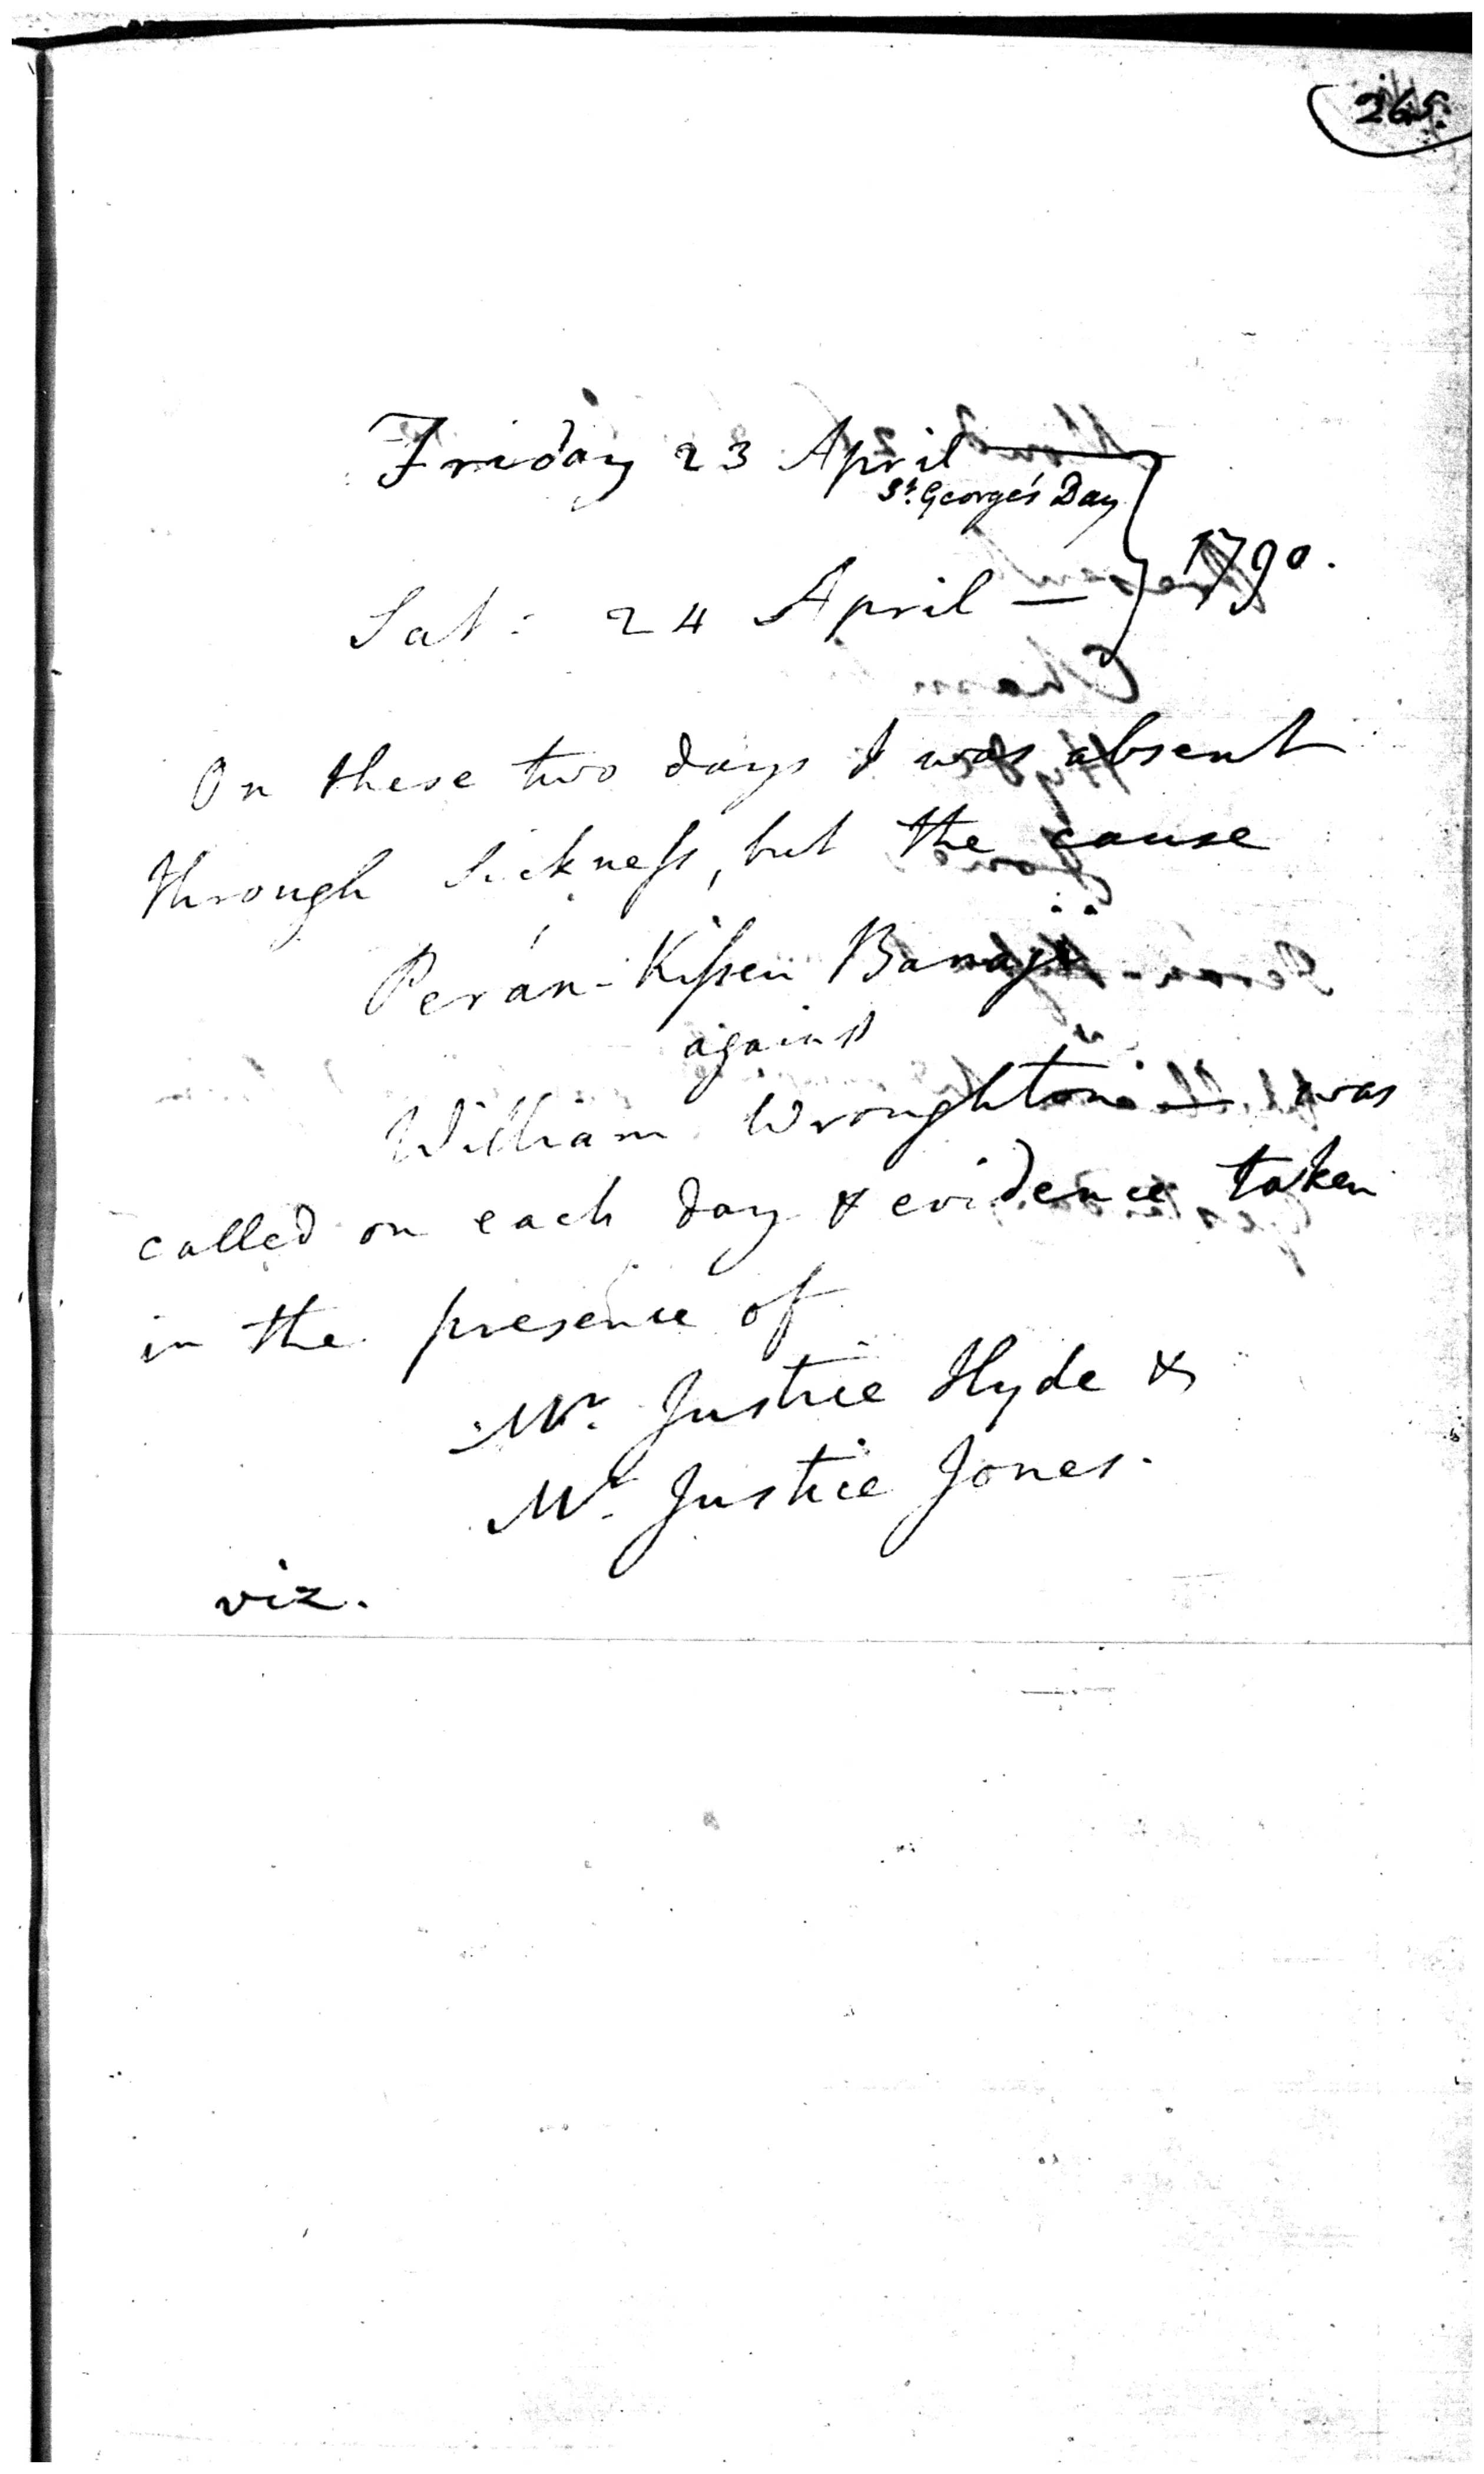 265.
Friday 23 April
St. George's Day
1790.
Sat: 24 April —
On these two days I was absent
through Sickness, but the cause
Perán-Kissen Banagi
against
William Wroughton — was
called on each day & evidence taken
in the presence of
Mr. Justice Hyde &
Mr. Justice Jones.
viz.